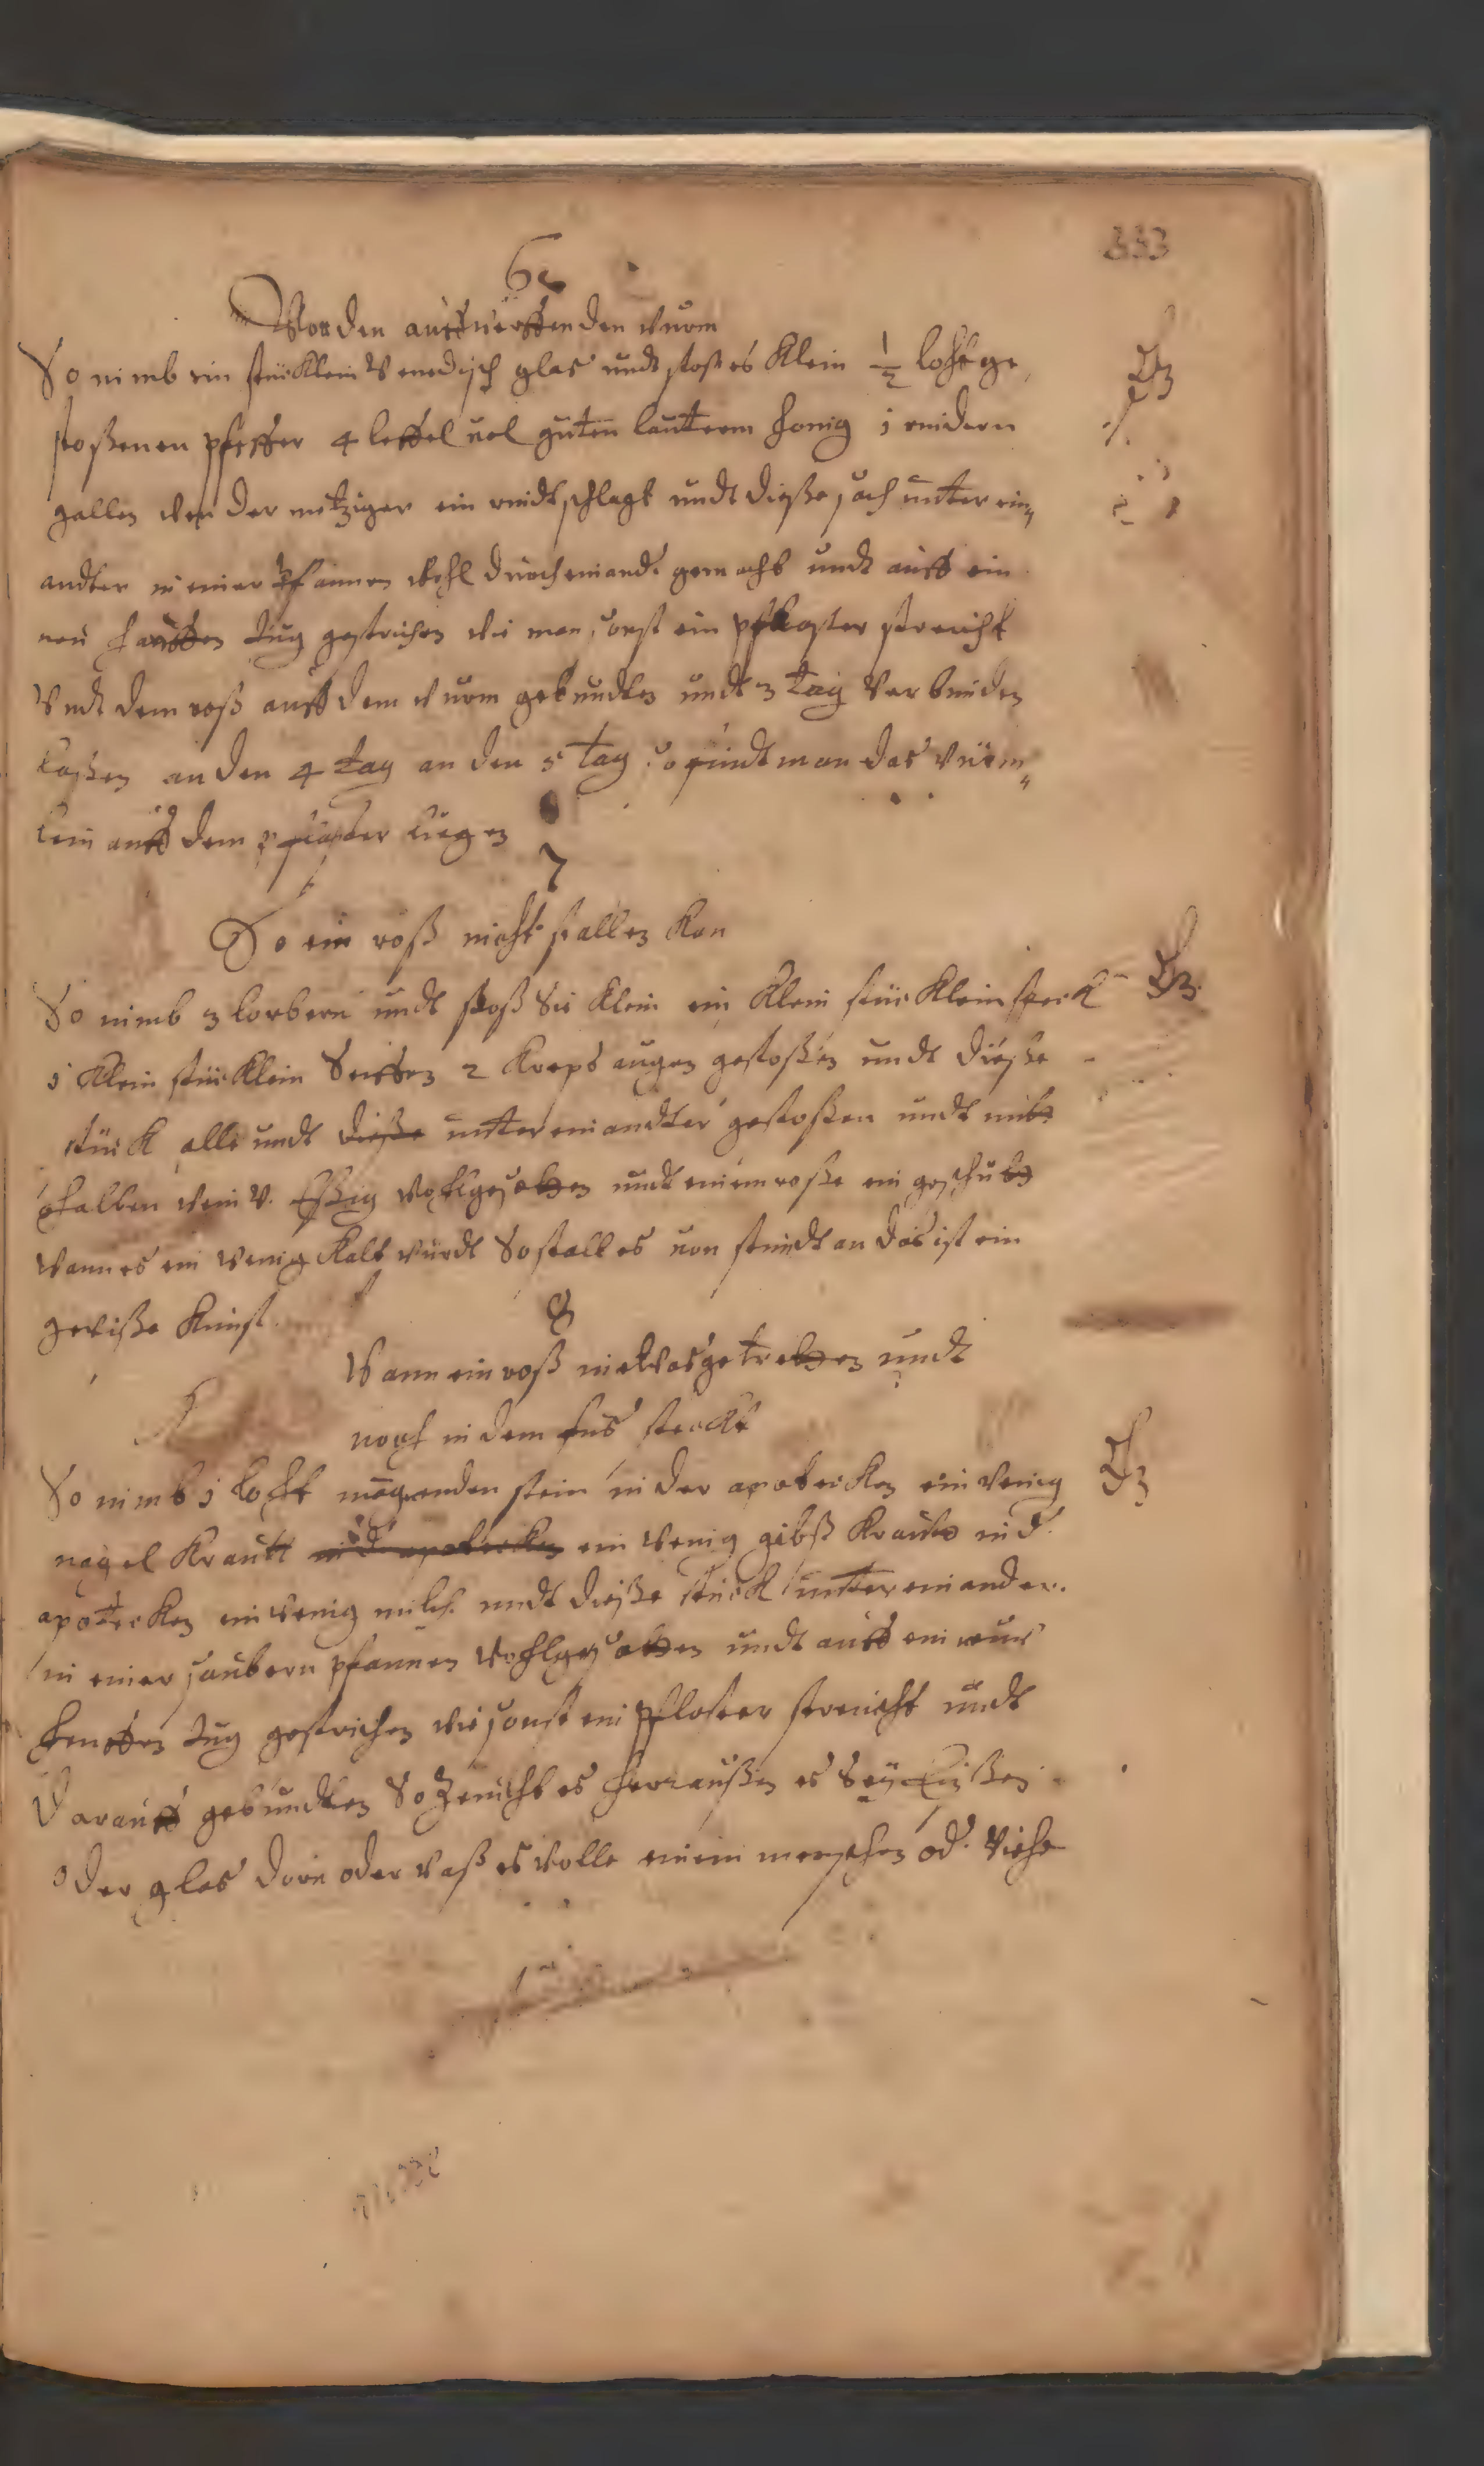 333
6
Vor den auffwerffenden wurm
So nimb ein stücklein Venedisch glas undt stoß es klein ½ loht ge
stoßenen pfeffer 4 leffel vol guten lauttern honig 1 rindern
gallen wen der metziger ein rindt schlagt undt dieße sach unter ein„
andter in einer Pfannen wohl durch einand. gemacht undt auff ein
neu hanffen tug gestrichen wie man sonst ein pflaster streicht
Undt dem roß auff dem wurm gebundten undt 3 tag verbunden
laßen an den 4 tag an den 5 tag so findt man das würm„
lein auff dem pflaster liegen
7
So ein roß nicht stallen kan
So nimb 3 lorbern undt stoß sie klein ein klein stücklein speck
1 klein stücklein Seiffen 2 kreps augen gestoßen undt dieße
stück alle undt dieße unter einandter gestoßen undt mitt
halben wein v. Eßig wohl gesotten undt einem roße ein geschutt
wann es ein wenig kalt würdt So stalt es von stundt an das ist ein
gewiße kunst.
8
Wann ein roß in etwas getretten undt
noch in dem fus steckt
So nimb 1 loht magnenden stein in der apotecken ein wenig
nagel krautt in d. apotecken ein wenig gibß kraut in d.
apotecken ein wenig milch undt dieße stück unter einander.
in einer saubern pfannen wohl gesotten undt auff ein neus
henffen tug gestrichen wie sonst ein pflaster streicht undt
darauff gebundten So Zeucht es herraußen es sey Eißen
oder glas dorn oder waß es wolle einem menschen od. Viehe